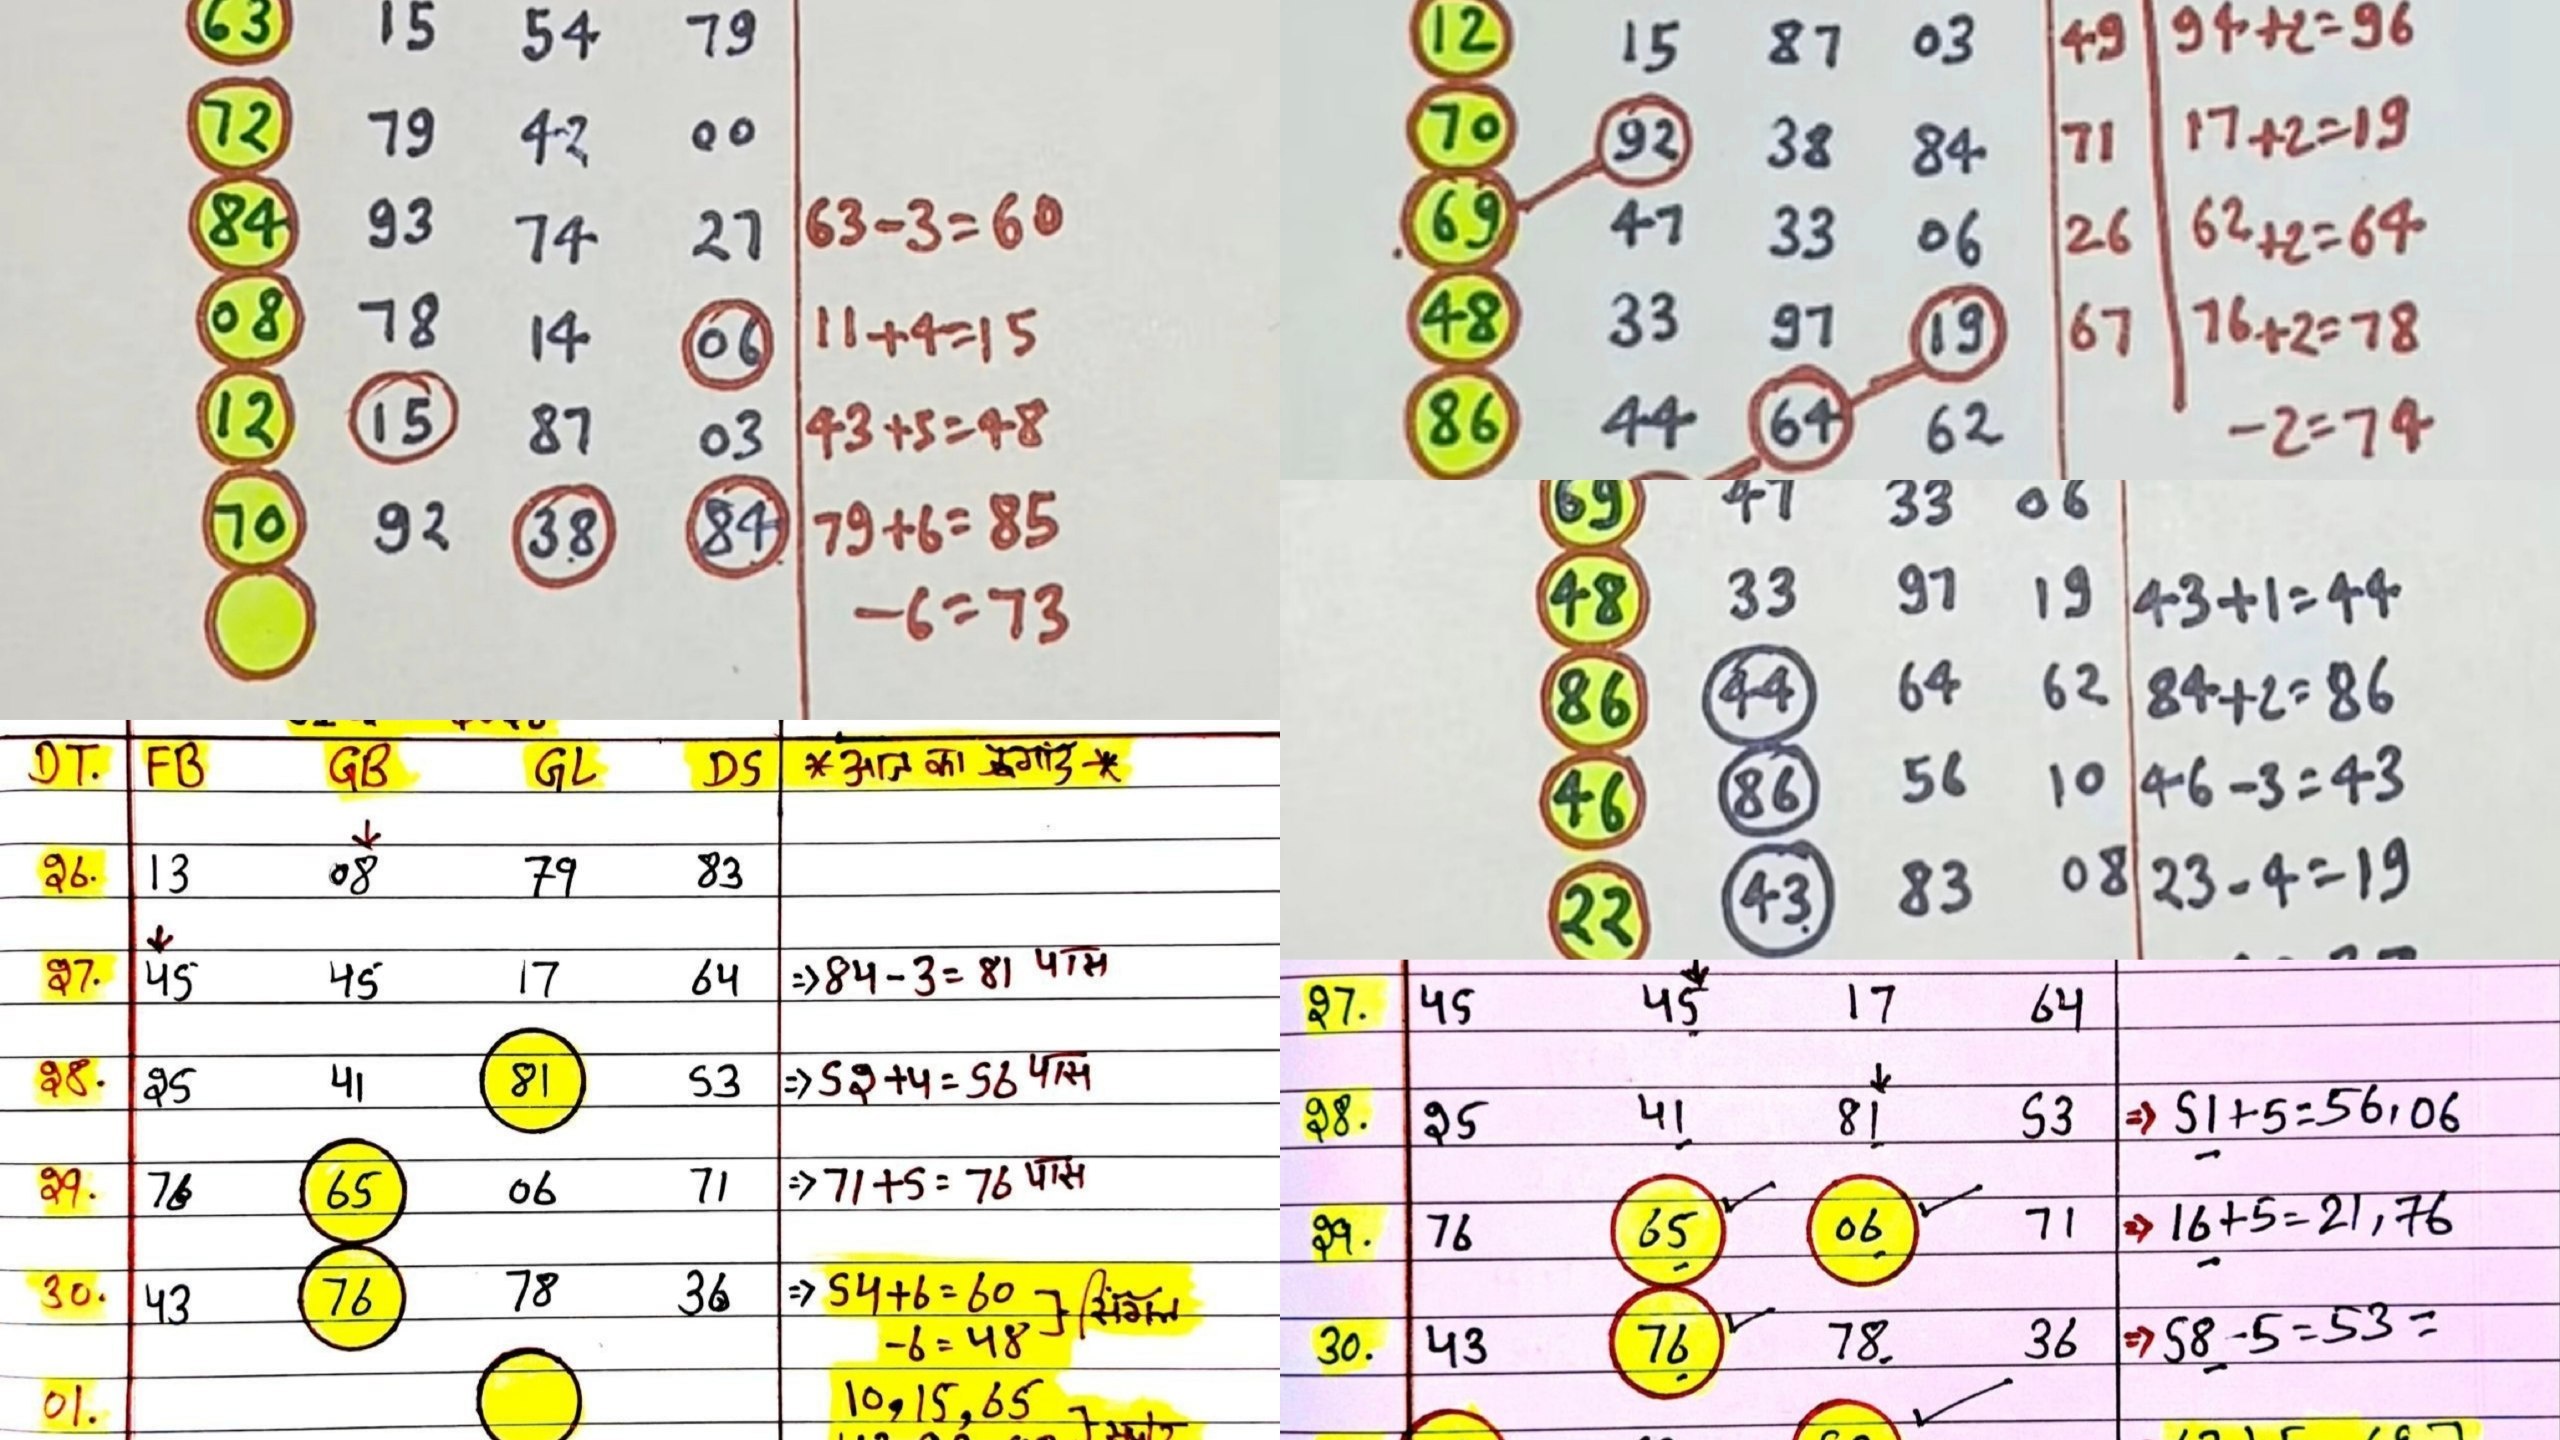 63 15 54 79
72 79 42 00
84 93 74 27 63-3=60
08 78 14 06 11+4=15
12 15 87 03 43+5=48
70 92 38 84 79+6=85
-6=73
12 15 87 03 49 94+2=96
70 92 38 84 71 17+2=19
69 47 33 06 26 62+2=64
48 33 97 19 67 76+2=78
86 44 64 62 -2=74
69 47 33 06
48 33 97 19 43+1=44
86 44 64 62 84+2=86
46 86 56 10 46-3=43
22 43 83 08 23-4=19
DT. FB GB GL DS *आज का
२6. 13 08 79 83
२7. 45 45 17 64 ⇒84-3=81 पास
२8. २5 41 81 53 ⇒5२+4=56 पास
२9. 76 65 06 71 ⇒71+5=76 पास
30. 43 76 78 36 ⇒54+6=60
-6=48
01. 10,15,65
२7. 45 45 17 64
२8. २5 41 81 53 ⇒51+5=56,06
२9. 76 65 06 71 ⇒16+5=21,76
30. 43 76 78 36 ⇒58-5=53=